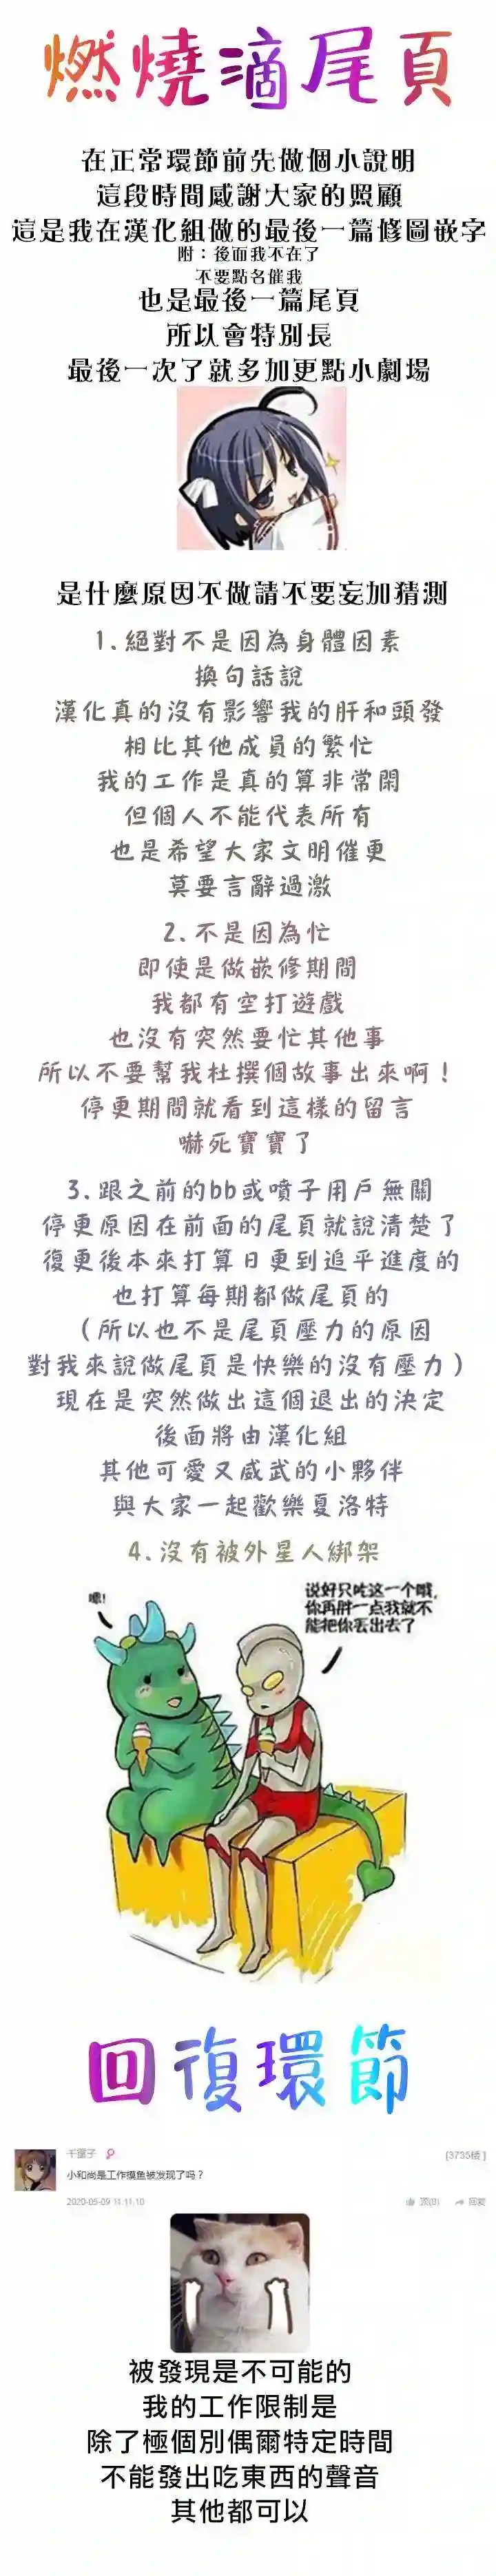 燃燒滴尾頁
在正常環節前先做個小說明
這段時間感謝大家的照顧
這是我在漢化組做的最後一篇修圖嵌字
附：後面我不在了
不要點名催我
也是最後一篇尾頁
所以會特別長
最後一次了就多加更點小劇場
是什麼原因不做請不要妄加猜測
1.絕對不是因為身體因素
換句話說
漢化真的沒有影響我的肝和頭發
相比其他成員的繁忙
我的工作是真的算非常閑
但個人不能代表所有
也是希望大家文明催更
莫要言辭過激
2.不是因為忙
即使是做嵌修期間
我都有空打遊戲
也沒有突然要忙其他事
所以不要幫我杜撰個故事出來啊！
停更期間就看到這樣的留言
嚇死寶寶了
3.跟之前的bb或噴子用戶無關
停更原因在前面的尾頁就說清楚了
復更後本來打算日更到追平進度的
也打算每期都做尾頁的
（所以也不是尾頁壓力的原因
對我來說做尾頁是快樂的沒有壓力）
現在是突然做出這個退出的決定
後面將由漢化組
其他可愛又威武的小夥伴
與大家一起歡樂夏洛特
4.沒有被外星人綁架
嗯!
说好只吃这一个哦，
你再胖一点我就不
能把你丢出去了
回復環節
千重子
(3735楼)
小和尚是工作摸鱼被发现了吗？
2020-05-09 11:11:10
顶(0)
回复
被發現是不可能的
我的工作限制是
除了極個別偶爾特定時間
不能發出吃東西的聲音
其他都可以